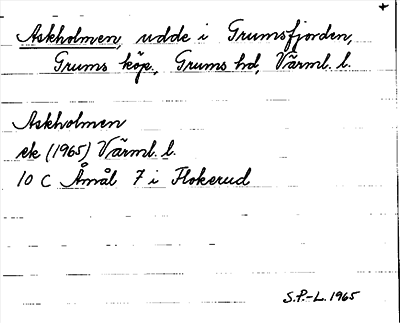 Askholmen, udde i Grumsfjorden,
Grums köp., Grums hd, Värml. l.
Askholmen
ek (1965) Värml. l.
10 C Åmål 7 i Flokerud
S.P.-L. 1965